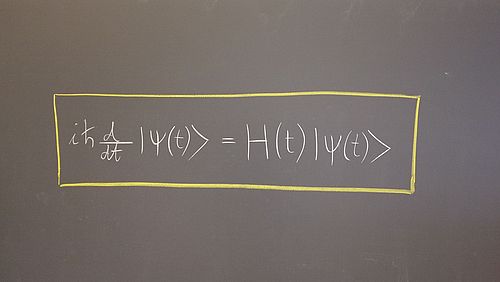 iħ d/dt |ψ(t)⟩ = H(t)|ψ(t)⟩